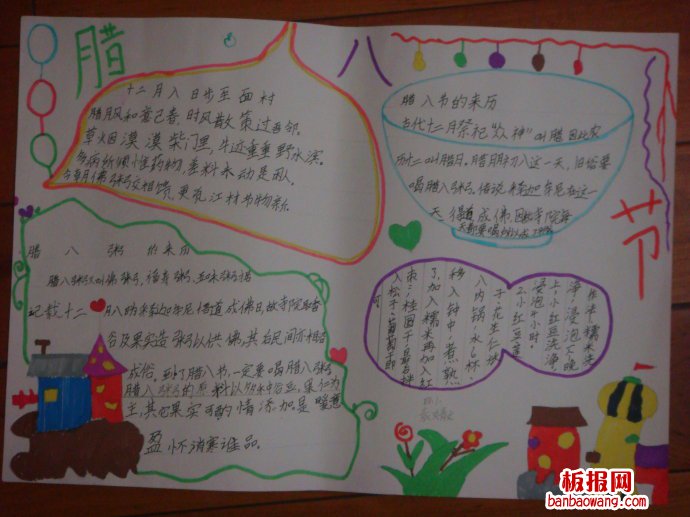 腊
八
节
十二月八日步至西村
腊月风和意已春,时风散策过吾邻。
草烟漠漠柴门里,牛迹重重野水滨。
多病所须惟药物,差科未动是闲人。
今朝佛粥交相馈,更觉江村节物新。
腊八节的来历
古代十二月祭祀"众神"叫腊,因此农
历十二叫腊月。腊月初八这一天,旧俗要
喝腊八粥。传说释迦牟尼在这一
天得道成佛,因此寺院每
腊八粥的来历
腊八粥又叫佛粥、福寿粥、五味粥
记载十二月八日
谷及果实造粥以供佛,其后民间亦相沿
成俗。到了腊八节,一定要喝腊八粥。
腊八粥的原料以
主,其它果实可酌情添加,是暖意
盈怀消寒佳品。
净,浸泡不晚
上,小红豆洗净,
浸泡4小时
2.小红豆
八内锅,水6杯
移入钟中煮熟
3.加入糯米再加入红
枣、桂圆干
入松子、葡萄干即
可
板报网
banbaowang.com